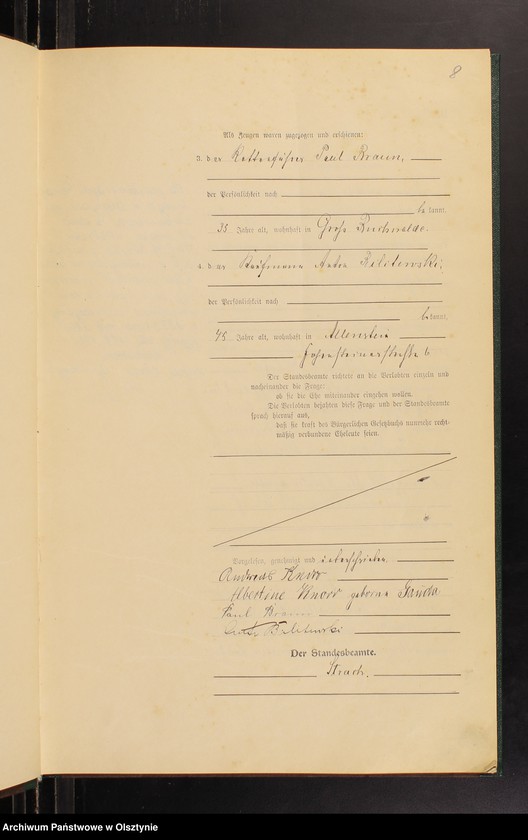 8
Als Zeugen waren zugezogen und erschienen:
3. der Rottenführer Paul Braun,
der Persönlichkeit nach
be kannt,
35 Jahre alt, wohnhaft in Groß Buchwalde.
4. der Kaufmann Anton Bilitewski,
der Persönlichkeit nach
be kannt,
48 Jahre alt, wohnhaft in Allenstein
Hohensteinerstraße
Der Standesbeamte richtete an die Verlobten einzeln und
nacheinander die Frage:
ob sie die Ehe miteinander eingehen wollen.
Die Verlobten bejahten diese Frage und der Standesbeamte
sprach hierauf aus,
daß sie kraft des Bürgerlichen Gesetzbuchs nunmehr recht-
mäßig verbundene Eheleute seien.
Vorgelesen, genehmigt und unterschrieben.
Andreas Knorr
Albertine Knorr geborne
Paul Braun
Anton Bilitewski
Der Standesbeamte.
Strach.
Archiwum Państwowe w Olsztynie